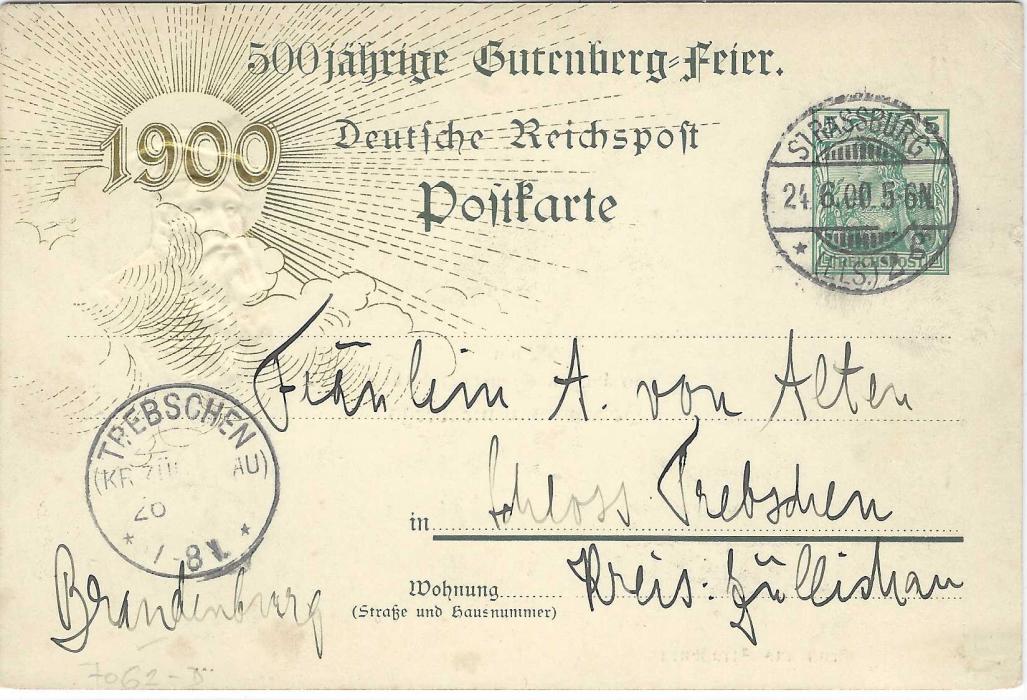 500jährige Gutenberg-Feier.
1900
Deutsche Reichspost
Postkarte
5
STRASSBURG
24.6.00.5-6N.
* (ELS.) 2 g
REICHSPOST
Fräulein A. von Alten
in Schloss Trebschen
TREBSCHEN
(KR. ZÜL AU)
26
* 7-8 V. *
Wohnung
(Straße und Hausnummer)
Kreis: Züllichau
Brandenburg
7062-D